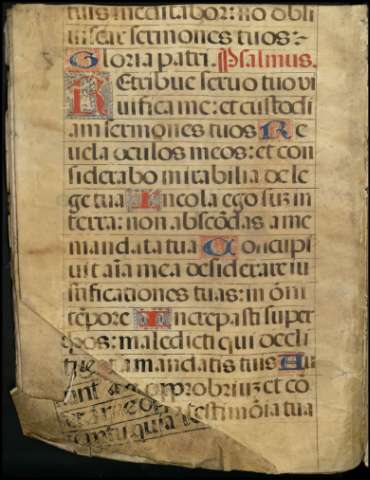 tuis meditabor: nō obli
uiscar sermones tuos:-
Gloria patri. Psalmus.
REtribue seruo tuo vi
uifica me: et custodi
am sermones tuos Re
uela oculos meos: et con
siderabo mirabilia de le
ge tua Incola ego sūz in
terra: non abscōdas a me
mandata tua Concupi
uit aīa mea desiderare iu
stificationes tuas: in ōni
tēpore Increpasti super
bos: maledicti qui decli
mandatis tuis Au
opprobriūz et cō
testimōia tua
quia